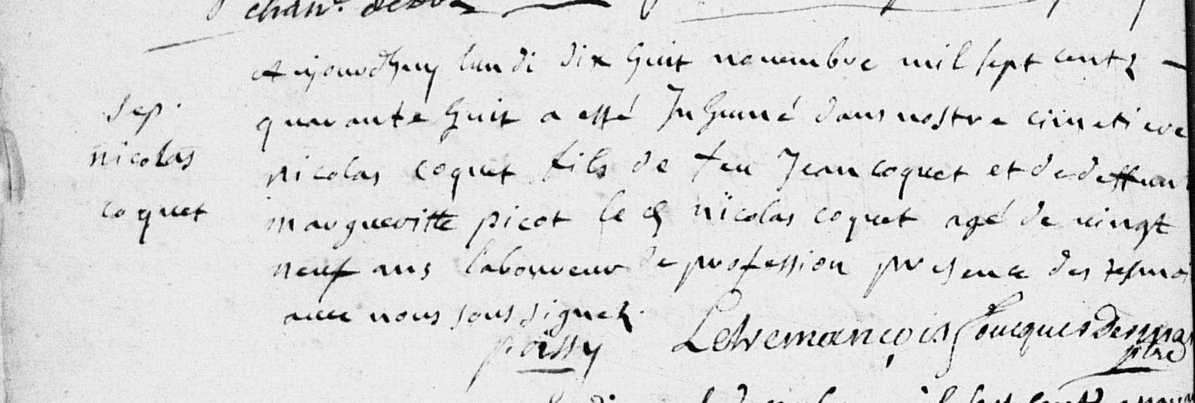 sep.
nicolas
coquet
aujourdhuy lundi dix huit novembre mil sept centz
quarante huit a esté Inhumé dans nostre cimetiere
nicolas coquet fils de feu Jean coquet et de deffun
margueritte picot le nicolas coquet agé de vingt
neuf ans laboureur de profession presence des tesmo
avec nous sous signez.
poissy